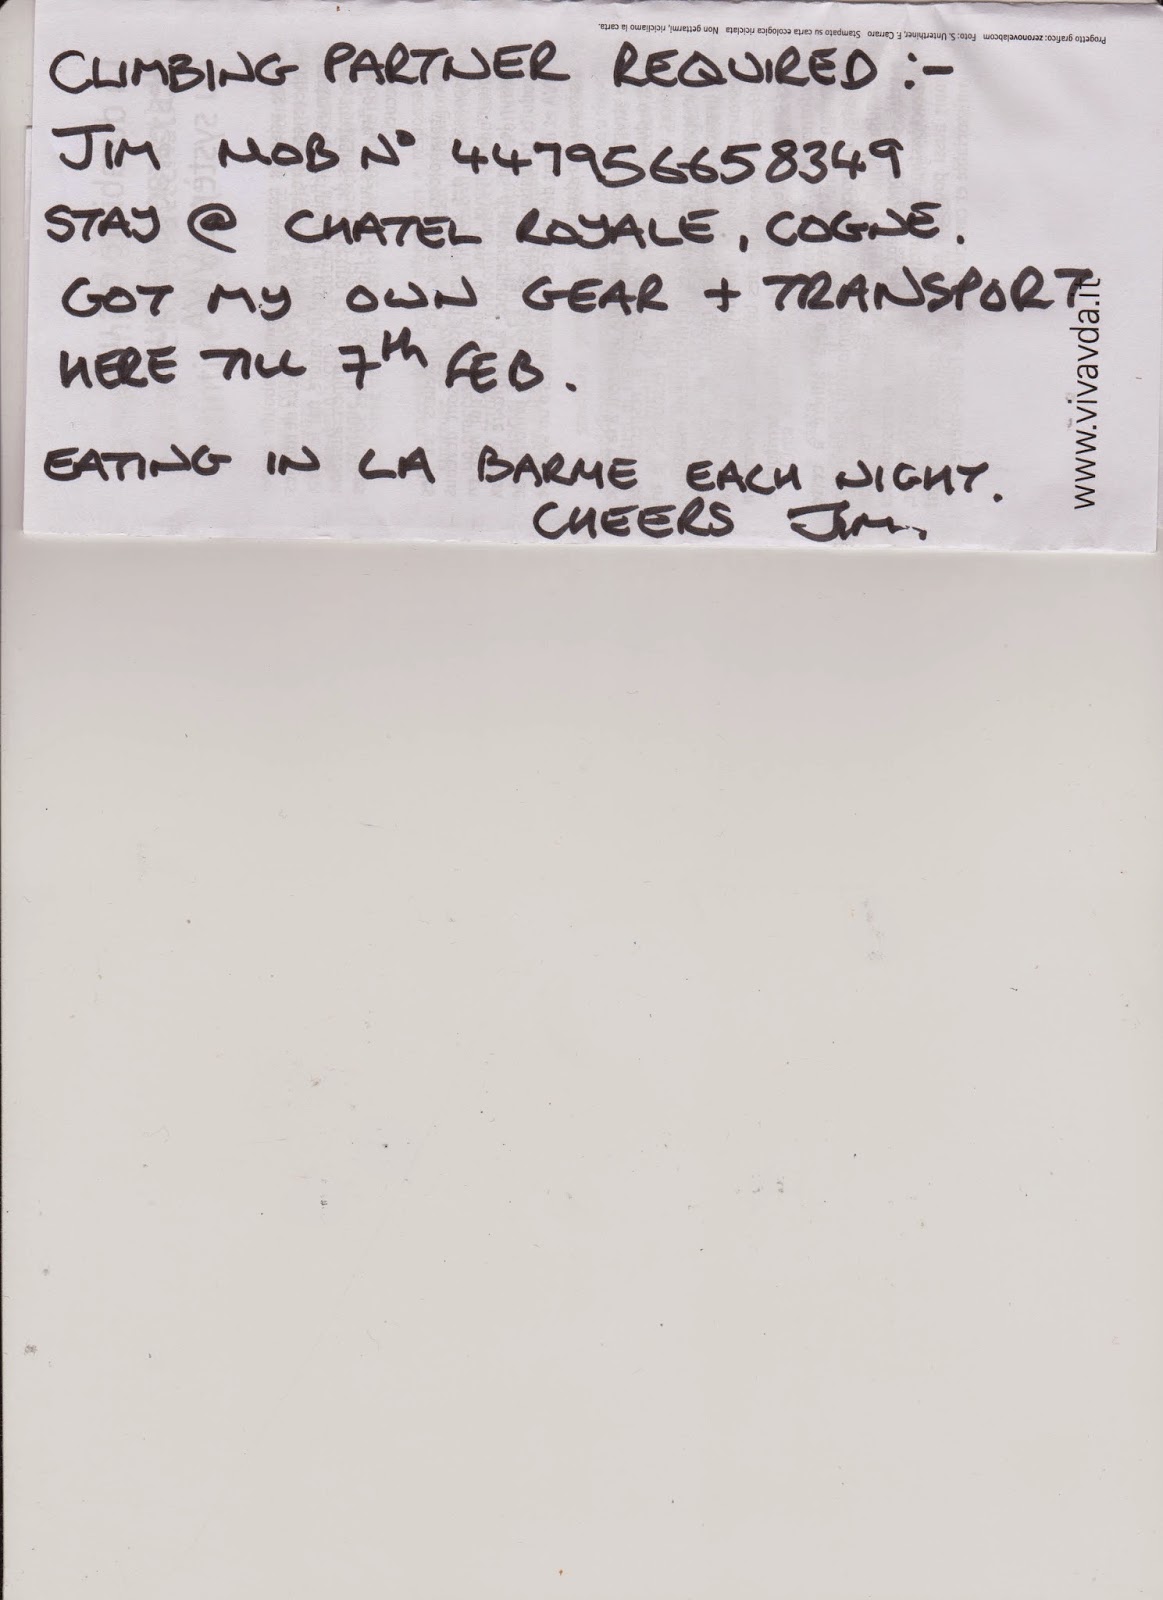 Progetto grafico: zeronovelabcom Foto: S. Unterthiner, F. Carraro Stampato su carta ecologica riciclata Non gettarmi, ricicliamo la carta.
CLIMBING PARTNER REQUIRED :-
JIM MOB N° 447956658349
STAY @ CHATEL ROYALE, COGNE.
GOT MY OWN GEAR + TRANSPORT
HERE TILL 7th FEB.
EATING IN LA BARME EACH NIGHT.
CHEERS JIM.
www.vivavda.it